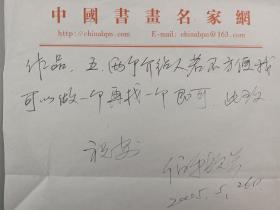 中國書畫名家網
http://chinahpn.com E-mail: chinahpn@163.com
作品、五、两印介绍人若不方便找
可以做一印再找一印即可 此致
祝安
2005.5.26日